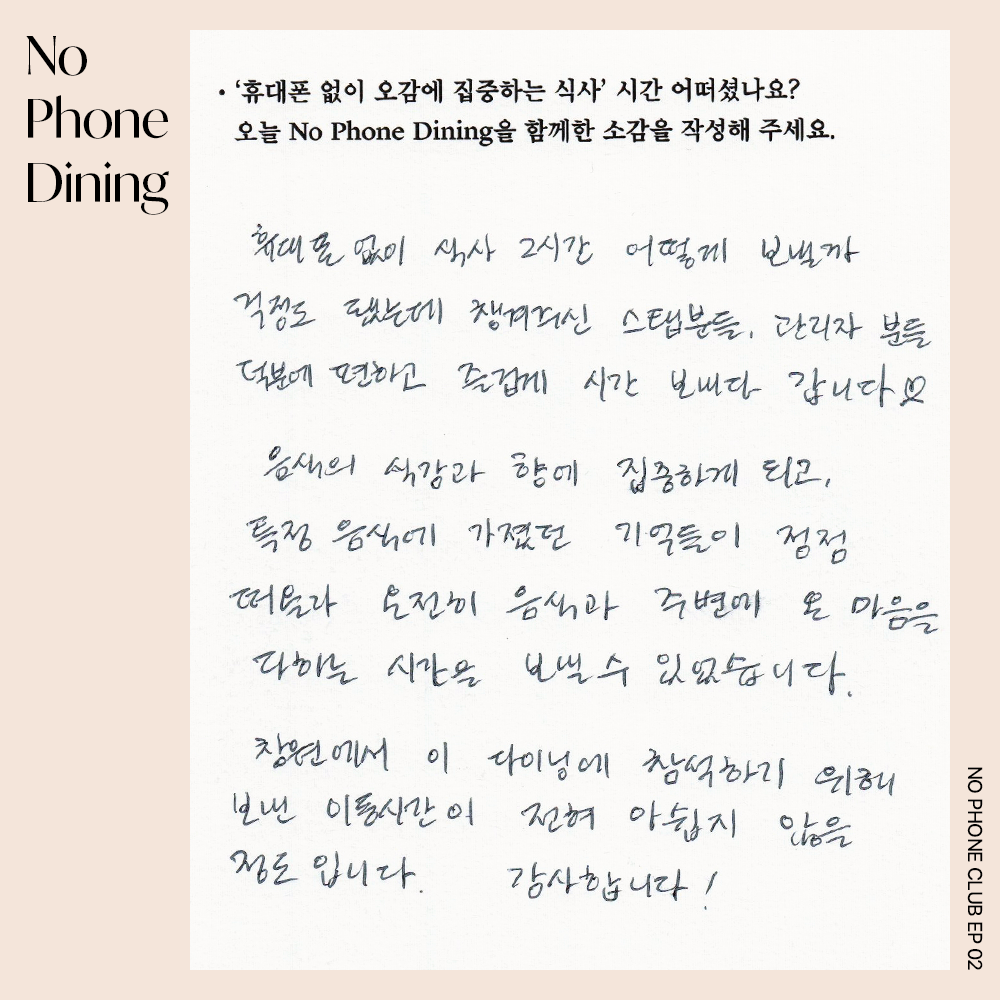 No
Phone
Dining
• ‘휴대폰 없이 오감에 집중하는 식사’ 시간 어떠셨나요?
오늘 No Phone Dining을 함께한 소감을 작성해 주세요.
휴대폰 없이 식사 2시간 어떻게 보낼까
걱정도 됐는데 챙겨주신 스탭분들, 관리자 분들
덕분에 편하고 즐겁게 시간 보내다 갑니다♡
음식의 식감과 향에 집중하게 되고,
특정 음식에 가졌던 기억들이 점점
떠올라 온전히 음식과 주변에 온 마음을
다하는 시간을 보낼 수 있었습니다.
창원에서 이 다이닝에 참석하기 위해
보낸 이동시간이 전혀 아쉽지 않을
정도입니다. 감사합니다!
NO PHONE CLUB EP 02